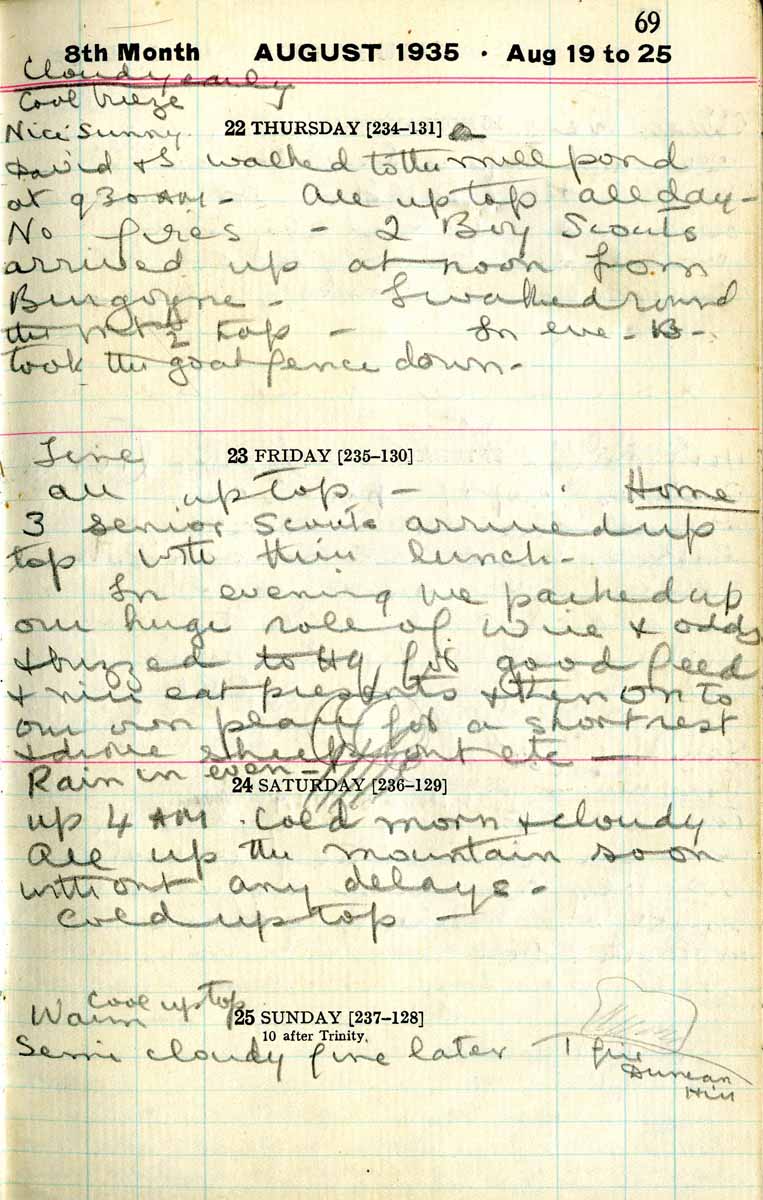 69
8th Month AUGUST 1935 · Aug 19 to 25
Cloudy early
Cool breeze
Nice Sunny 22 THURSDAY [234–131]
David & I walked to the mill pond
at 9 30 AM - All up top all day -
No fires - 2 Boy Scouts
arrived up at noon from
Burgoyne - I walked round
the mt top - In eve - B -
took the goat fence down -
Fine 23 FRIDAY [235–130]
all up top - Home
3 senior scouts arrived up
top with their lunch -
In evening we packed up
our huge role of wire & odds
& buzzed to HQ for good feed
& nice eat presents & then on to
our own place for a short rest
& drove sheep out etc —
Rain in even - 24 SATURDAY [236–129]
up 4 AM . Cold morn & cloudy
All up the mountain soon
without any delays -
Cold up top -
Cool up top
Warm 25 SUNDAY [237–128]
10 after Trinity.
Semi cloudy fine later 1 fire
Duncan
Hill